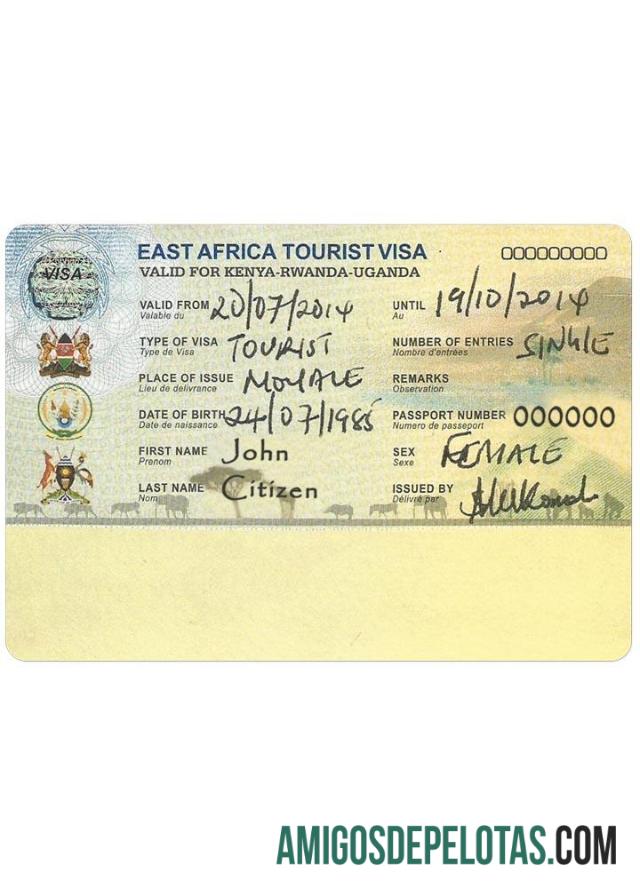 EAST AFRICA TOURIST VISA
000000000
VISA
VALID FOR KENYA-RWANDA-UGANDA
VALID FROM 20/07/2014 UNTIL 19/10/2014
Valable du Au
TYPE OF VISA TOURIST NUMBER OF ENTRIES SINGLE
Type de Visa Nombre d'entrées
PLACE OF ISSUE MOYALE REMARKS
Lieu de delivrance Observation
DATE OF BIRTH 24/07/1985 PASSPORT NUMBER 000000
Date de naissance Numero de passeport
FIRST NAME John SEX FEMALE
Prenom Sexe
LAST NAME Citizen ISSUED BY
Nom Délivré par
AMIGOSDEPELOTAS.COM